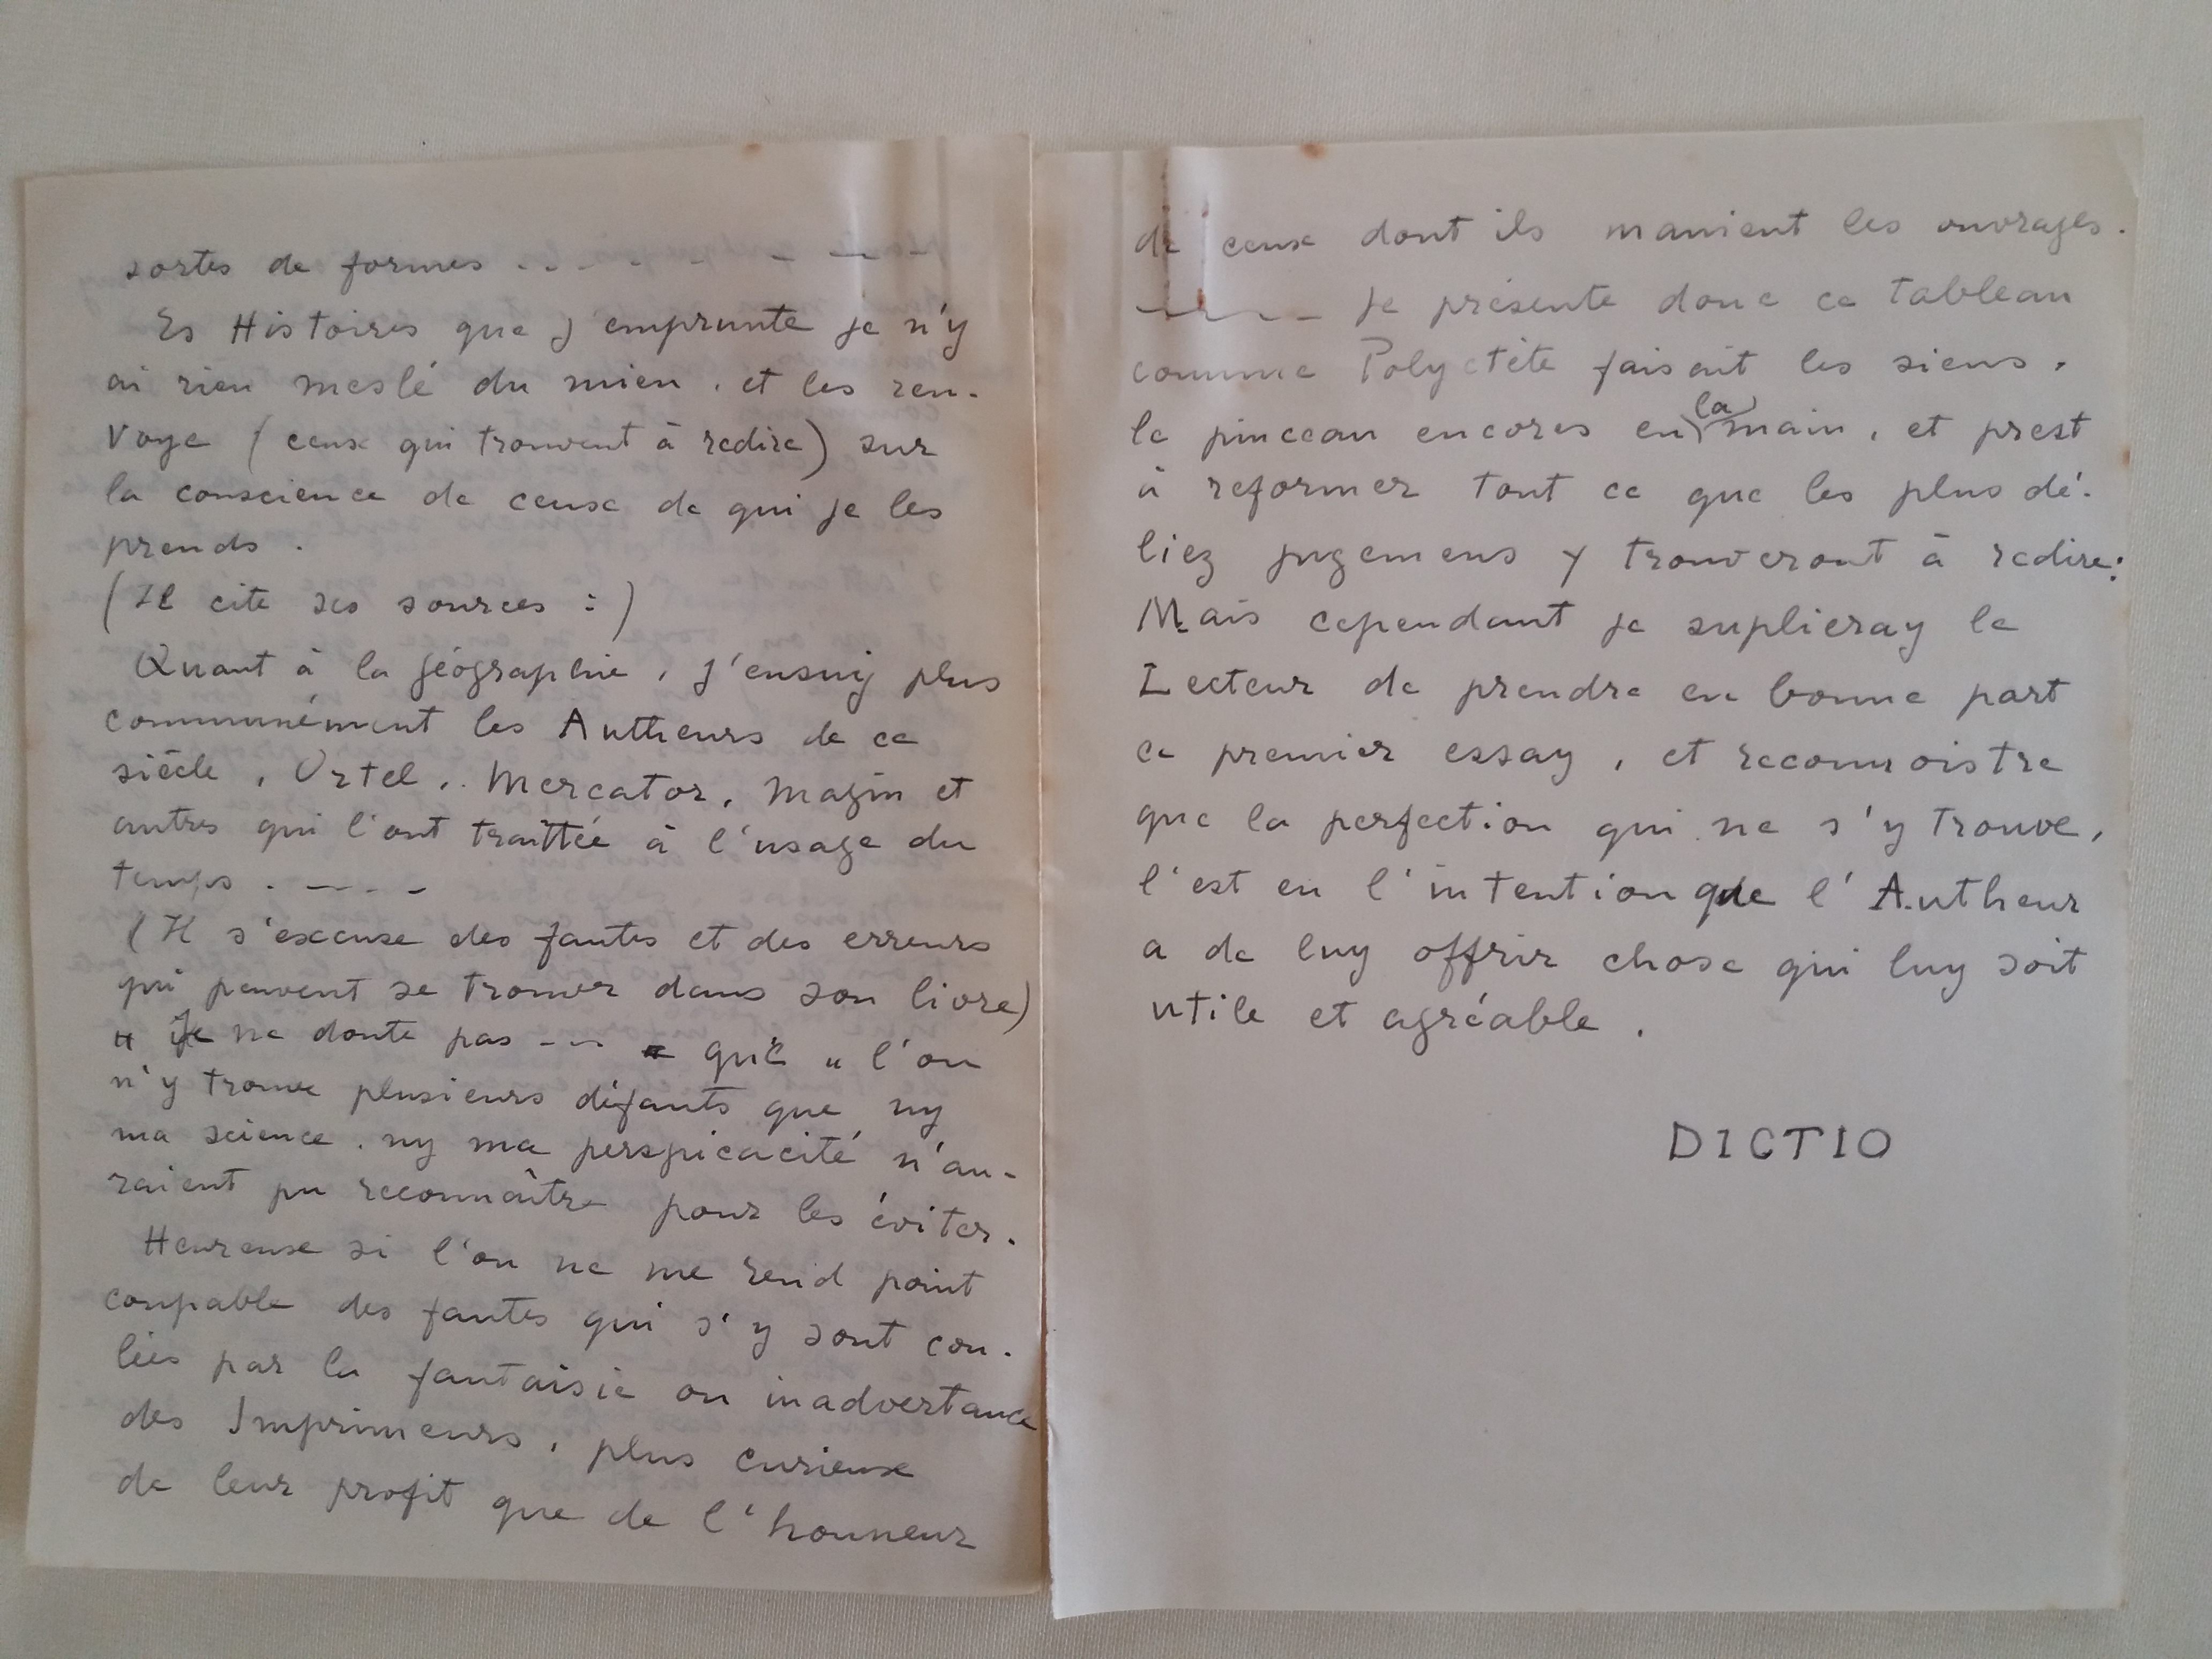 sortes de formes - - - - - - - -
Es Histoires que j'emprunte je n'y
ai rien meslé du mien, et les ren-
voye (ceux qui trouvent à redire) sur
la conscience de ceux de qui je les
prends.
(Il cite ses sources :)
Quant à la géographie, j'ensuy plus
communément les Autheurs de ce
siècle, Ortel, Mercator, Magin et
autres qui l'ont traittée à l'usage du
temps. - - - -
(Il s'excuse des fautes et des erreurs
qui peuvent se trouver dans son livre)
" Je ne doute pas - - - que " l'on
n'y trouve plusieurs défauts que ny
ma science, ny ma perspicacité n'au-
raient pu reconnaître pour les éviter.
Heureux si l'on ne me rend point
coupable des fautes qui s'y sont cou-
lées par la fantaisie ou inadvertance
des Imprimeurs, plus curieux
de leur profit que de l'honneur
de ceux dont ils manient les ouvrages.
- - - - Je présente donc ce tableau
comme Polyctète faisait les siens,
le pinceau encores en la main, et prest
à reformer tout ce que les plus dé-
liez jugemens y trouveront à redire:
Mais cependant je suplieray le
Lecteur de prendre en bonne part
ce premier essay, et reconnoistre
que la perfection qui ne s'y trouve,
l'est en l'intention que l'Autheur
a de luy offrir chose qui luy soit
utile et agréable.
DICTIO